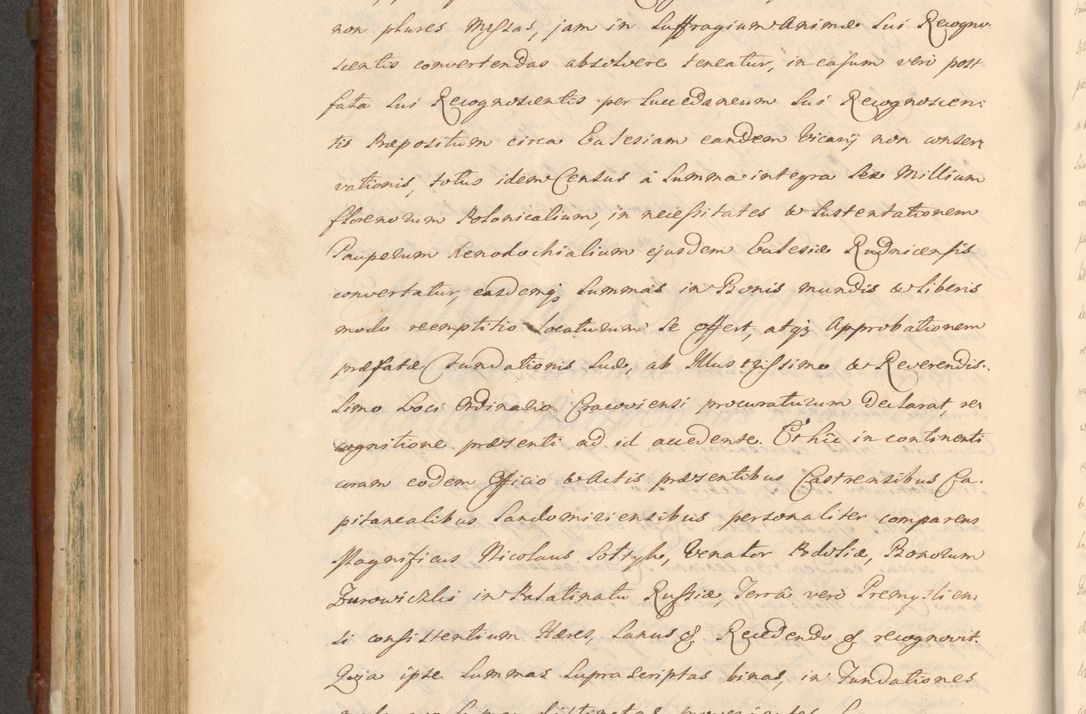 non plures Missas, jam in Suffragium Animæ Sui Recogno
scentis convertendas absolvere teneatur, in casum vero post
fata Sui Recognoscentis per Succedaneum Sui Recognoscen
tis Præpositum circa Eclesiam eandem Vicarij non conser
vationis, totus idem Census à Summa integra Sex Millium
florenorum Polonicalium, in necessitates & Sustentationem
Pauperum Xenodochialium ejusdem Eclesiæ Rudnicensis
convertatur, easdemq; Summas in Bonis mundis & Liberis
modo reemptitio locaturum Se offert, atq; Approbationem
præfatæ Fundationis Suæ, ab Illustrissimo & Reverendis.
Simo Loci Ordinario Cracoviensi procuraturum declarat, re
cognitione præsenti ad id accedente. Et hic in continenti
coram eodem Officio & Actis præsentibus Castrensibus Ca
pitanealibus Sandomiriensibus personaliter comparens
Magnificus Nicolaus Soltyk, Venator Podoliæ, Bonorum
Zurowiczki in Palatinatu Russiæ, Terrâ vero Premyslien
si consistentium Hæres, Sanus &. Recedendo & recognovit.
Quia ipse Summas Suprascriptas binas, in Fundationes